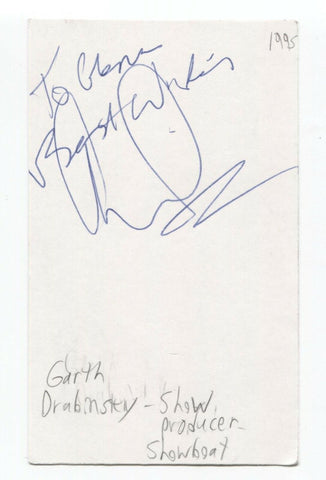 1995
To Glenn
Best Wishes
Garth
Drabinsky - Show
producer-
Showboat